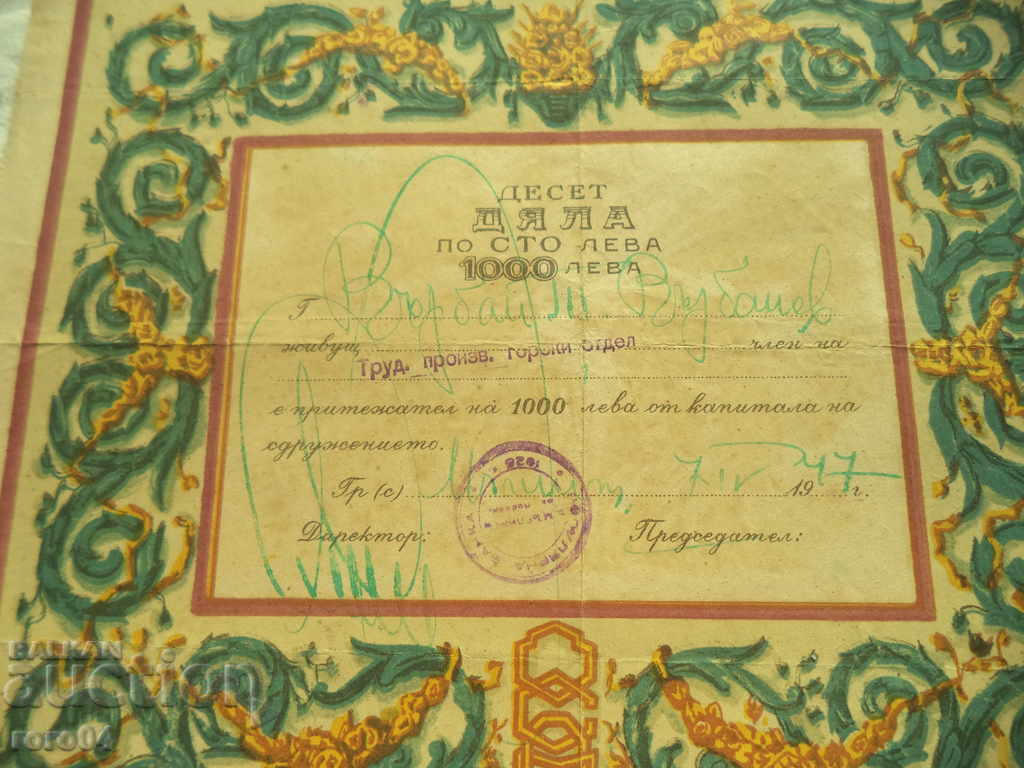 ДЕСЕТ
ДЯЛА
ПО СТО ЛЕВА
1000 ЛЕВА
Г Върбан Върбанов
живущ член на
Труд. произв. горски отдел
е притежател на 1000 лева от капитала на
сдружението.
Гр (с) 7 IV 1947 г.
Директор: Председател:
БАНКА
BALKAN
auction
roro04